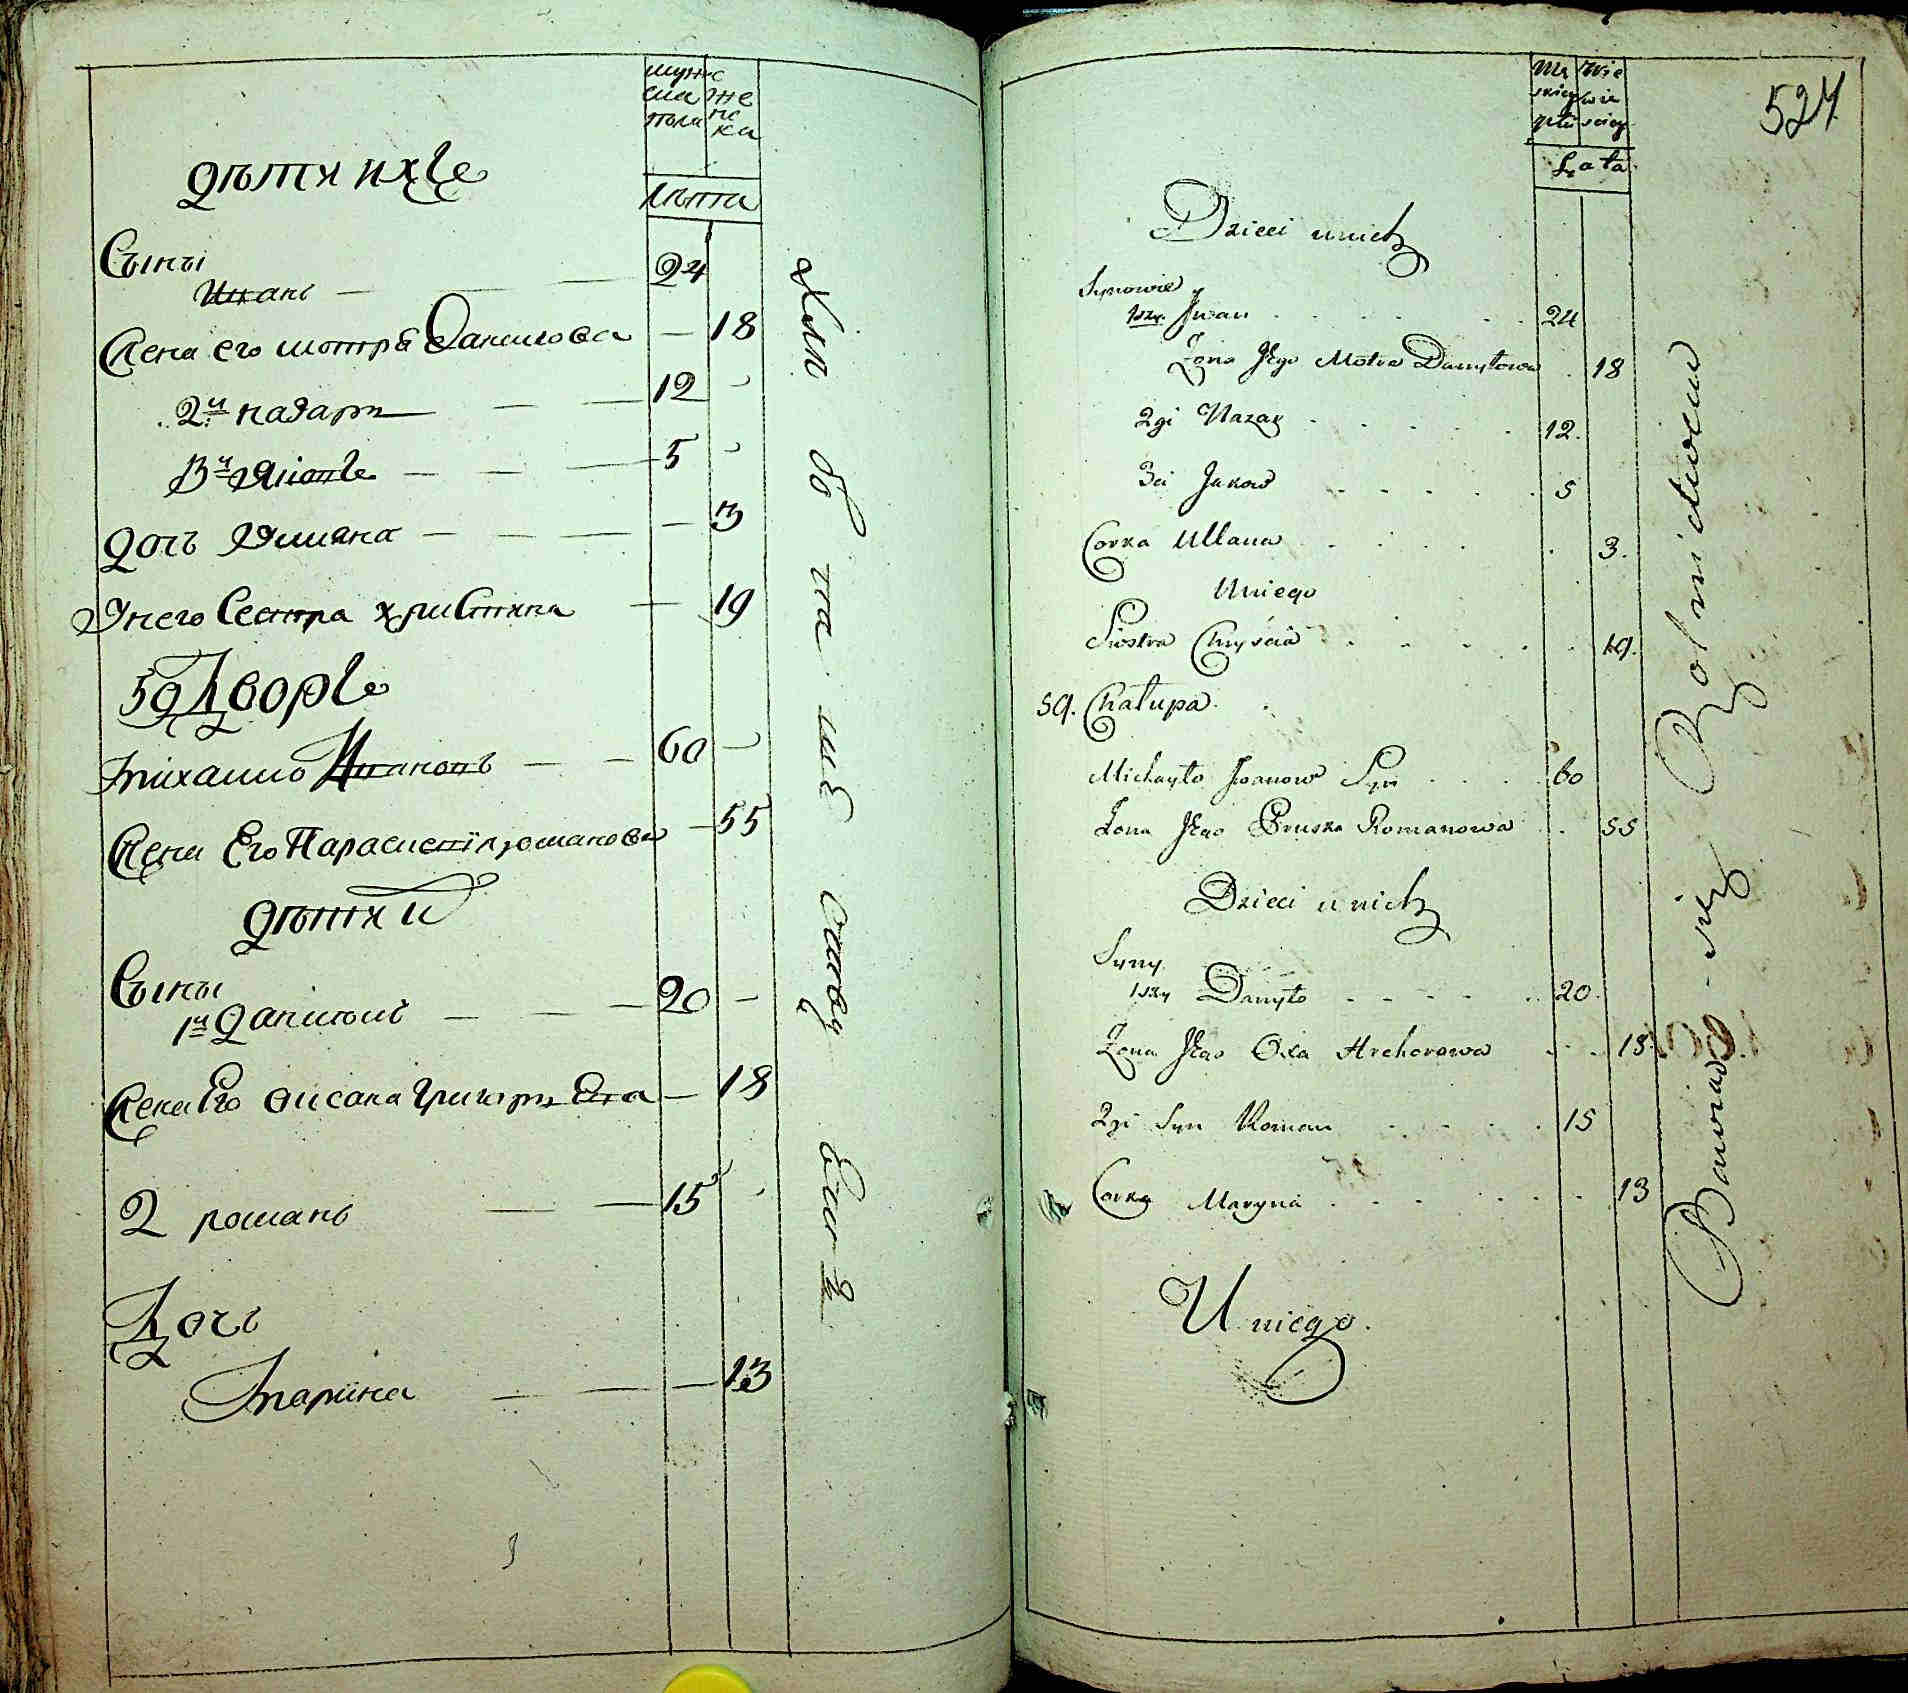 мужс
ска
пола
же
нс
ка
лѣта
дѣти ихъ
Сыны
Иванъ — — — 24
Жена его мотра Данилова — 18
2й назаръ — — 12
3й Яковъ — — — 5
дочь Уляна — — — 3
Унего Сестра христина — 19
59 Дворъ
михаило Ивановъ — — 60
Жена Его Параскевія романова — 55
дѣти и
Сыны
1й данило — — — 20
Жена Его оксана Григорьева — 18
2 романъ — — 15
Дочь
Марина — — — 13
Хлѣбопашествомъ
527
Mę
skiey
płci
Lata
Dzieci u nich
Synowie
1szy Jwan . . . . 24
Żona Jego Motra Danyłowa . 18
2gi Nazar . . . . 12.
3ci Jakow . . . . 5
Corka Ullana . . . . 3.
U niego
Siostra Chryścia . . . . 19.
59. Chałupa.
Michayło Jwanow Syn . . . 60
Żona Jego Pruska Romanowa . 55
Dzieci u nich
Syny
1szy Danyło . . . . 20.
Żona Jego Oxa Hrehorowa . . 18
2gi Syn Roman . . . . 15
Corka Maryna . . . . 13
U niego.
Bawiąc się Rolnictwem